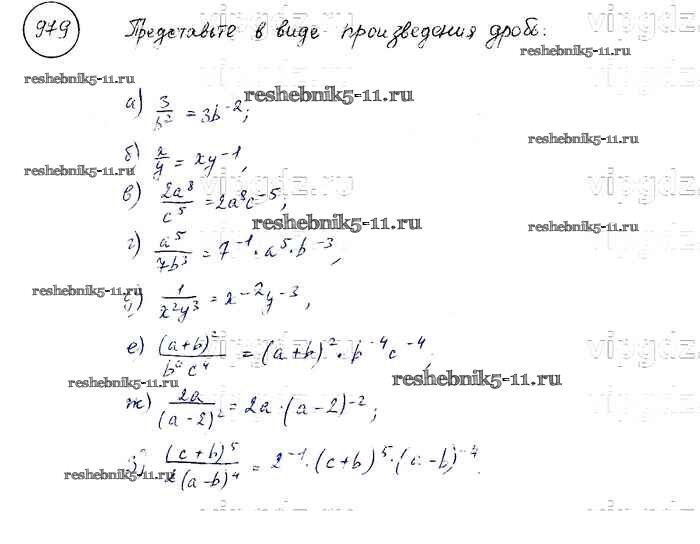 979 Представьте в виде произведения дробь:
vipgdz.ru
reshebnik5-11.ru
reshebnik5-11.ru
а) 3/b² = 3b⁻²;
reshebnik5-11.ru
б) x/y = xy⁻¹,
reshebnik5-11.ru
vipgdz.ru
в) 2a⁸/c⁵ = 2a⁸c⁻⁵;
reshebnik5-11.ru
reshebnik5-11.ru
г) a⁵/7b³ = 7⁻¹·a⁵·b⁻³,
reshebnik5-11.ru
д) 1/x²y³ = x⁻²y⁻³,
е) (a+b)²/b⁴c⁴ = (a+b)²·b⁻⁴c⁻⁴,
vipgdz
reshebnik5-11.ru
reshebnik5-11.ru
ж) 2a/(a-2)² = 2a·(a-2)⁻²;
з) (c+b)⁵/2(a-b)⁴ = 2⁻¹·(c+b)⁵·(a-b)⁻⁴.
reshebnik5-11.ru
reshebnik5-11.ru